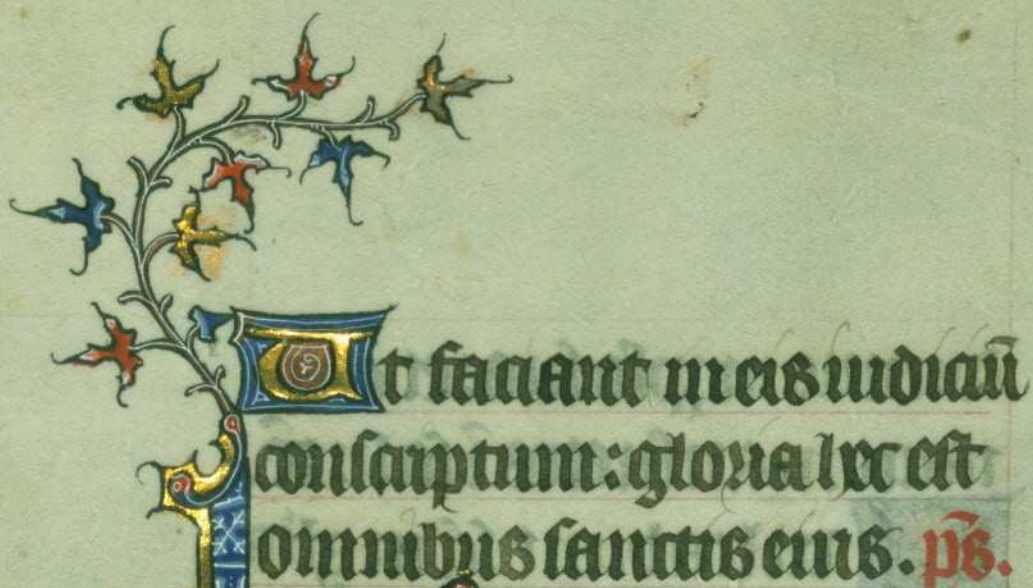 Ut faciant in eis iudiciū
conscriptum: gloria hec est
omnibus sanctis eius. ps̄.